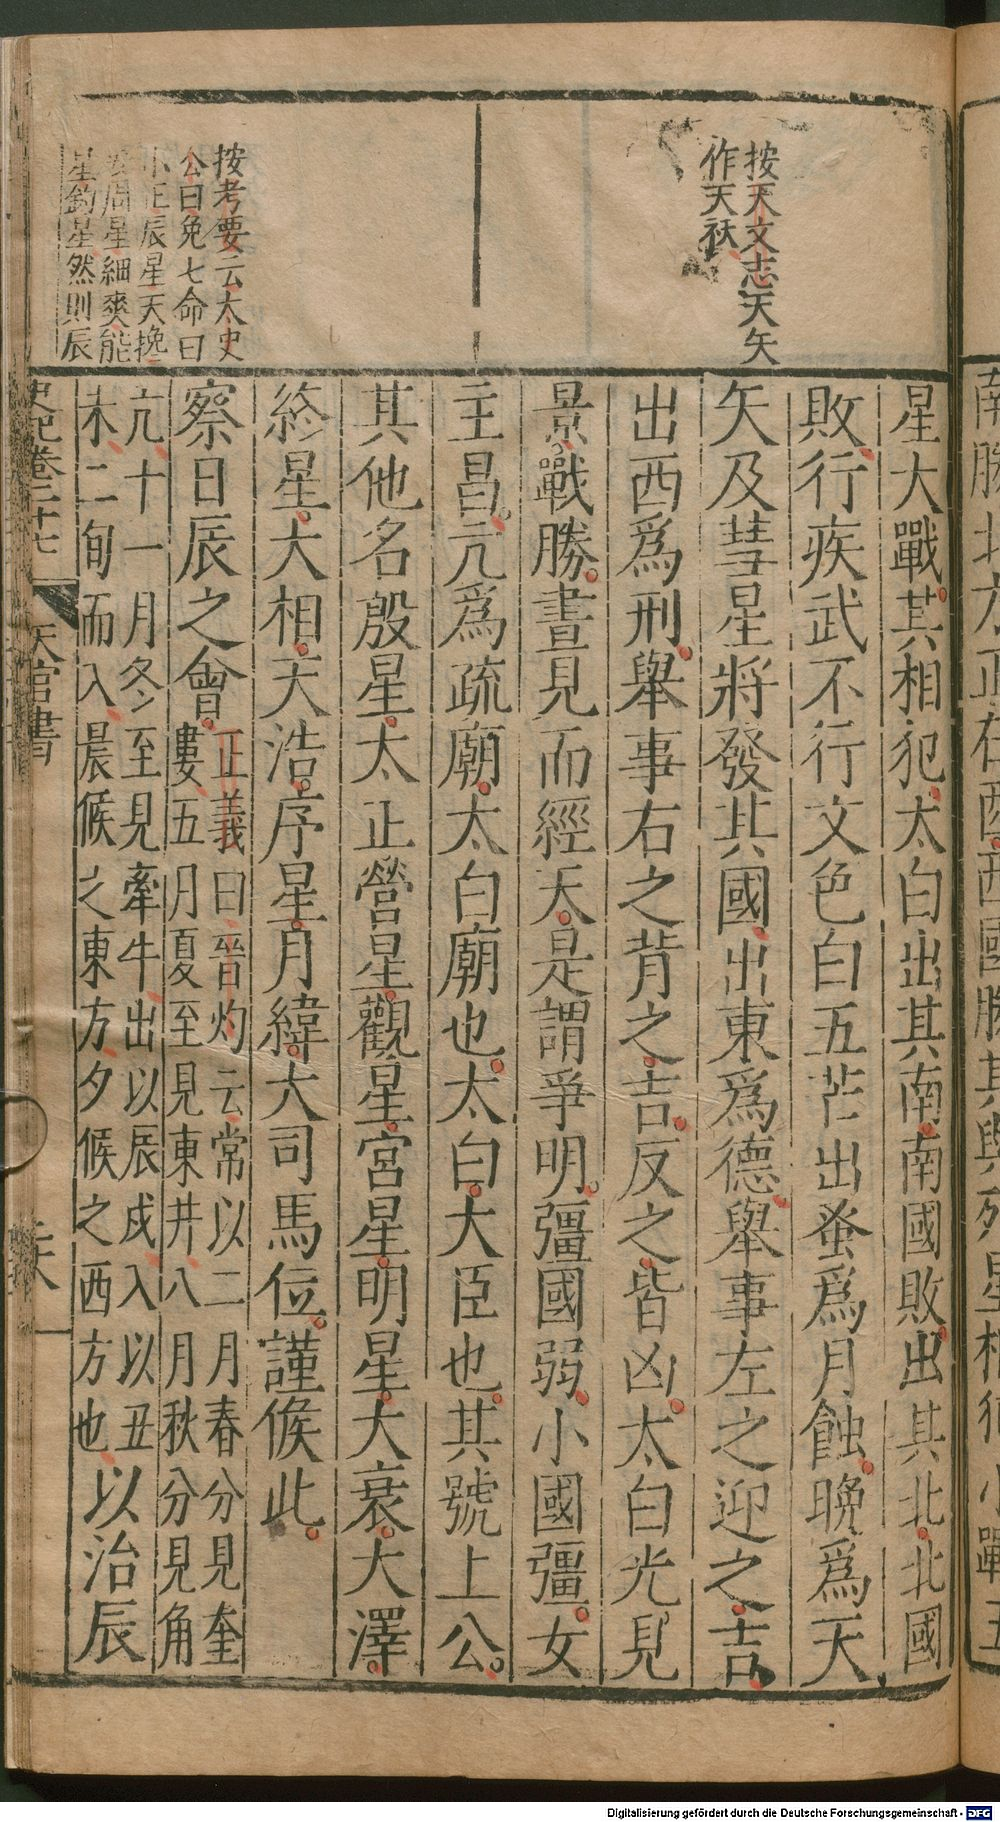 按天文志天矢
作天祅
按考要云太史
公曰免七命曰
小正辰星天㨯
安周星細爽能
星鈎星然則辰
星大戰其相犯太白出其南南國敗出其北北國
敗行疾武不行行文色白五芒出蚤爲月蝕晚爲天
矢及彗星將發其國出東爲德舉事左之迎之吉
出西爲刑舉事右之背之吉反之皆凶太白光見
景戰勝晝見而經天是謂爭明彊國弱小國彊女
主昌亢爲疏廟太白廟也太白大臣也其號上公
其他名殷星太正營星觀星宮星明星大衰大澤
終星大相天浩序星月緯大司馬位謹候此
察日辰之會正義曰晉灼云常以二月春分見奎
婁五月夏至見東井八月秋分見角
亢十一月冬至見牽牛出以辰戌入以丑
未二旬而入晨候之東方夕候之西方也以治辰
史記卷二十七 天官書
南勝北方正在酉西國勝其與列星相犯小戰五
Digitalisierung gefördert durch die Deutsche Forschungsgemeinschaft - DFG